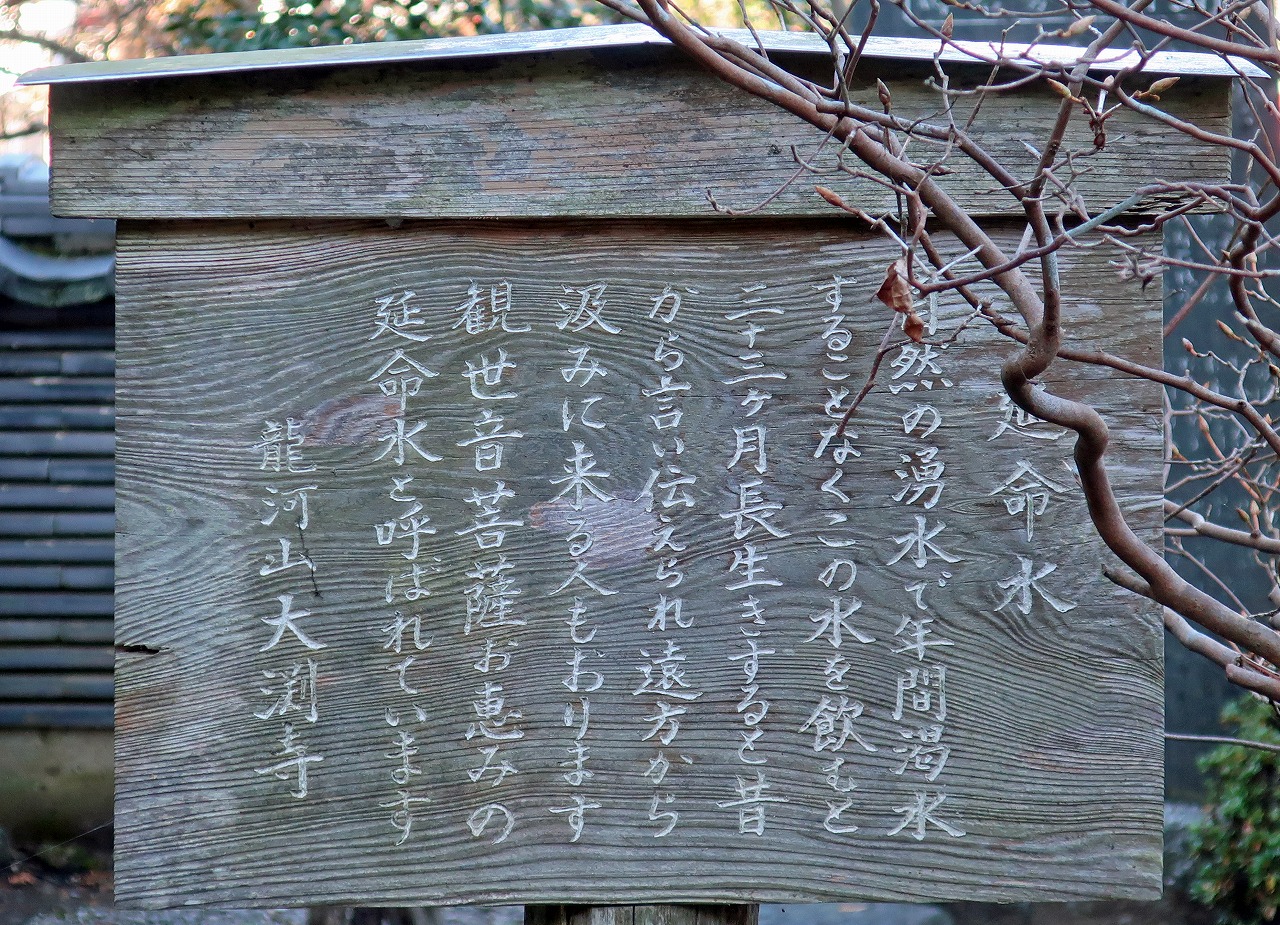 延命水
自然の湧水で年間渇水
することなくこの水を飲むと
三十三ヶ月長生きすると昔
から言い伝えられ遠方から
汲みに来る人もおります
観世音菩薩お恵みの
延命水と呼ばれています
龍河山大渕寺